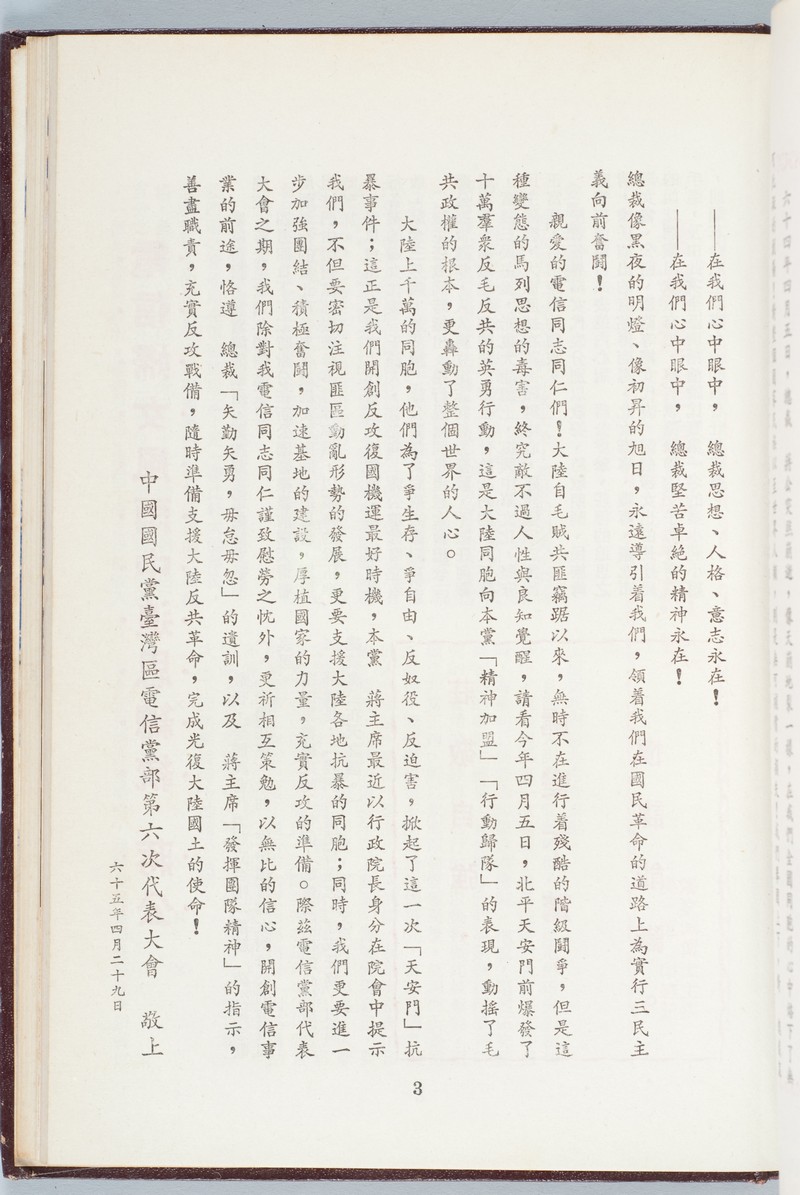 ——在我們心中眼中，　總裁思想、人格、意志永在！
——在我們心中眼中，　總裁堅苦卓絶的精神永在！
總裁像黑夜的明燈、像初昇的旭日，永遠導引着我們，領着我們在國民革命的道路上為實行三民主
義向前奮鬪！
親愛的電信同志同仁們！大陸自毛賊共匪竊踞以來，無時不在進行着殘酷的階級鬪爭，但是這
種變態的馬列思想的毒害，終究敵不過人性與良知覺醒，請看今年四月五日，北平天安門前爆發了
十萬羣衆反毛反共的英勇行動，這是大陸同胞向本黨「精神加盟」「行動歸隊」的表現，動搖了毛
共政權的根本，更轟動了整個世界的人心。
大陸上千萬的同胞，他們為了爭生存、爭自由、反奴役、反迫害，掀起了這一次「天安門」抗
暴事件；這正是我們開創反攻復國機運最好時機，本黨　蔣主席最近以行政院長身分在院會中提示
我們，不但要密切注視匪區動亂形勢的發展，更要支援大陸各地抗暴的同胞；同時，我們更要進一
步加強團結、積極奮鬪，加速基地的建設，厚植國家的力量，充實反攻的準備。際茲電信黨部代表
大會之期，我們除對我電信同志同仁謹致慰勞之忱外，更祈相互策勉，以無比的信心，開創電信事
業的前途，恪遵　總裁「矢勤矢勇，毋怠毋忽」的遺訓，以及　蔣主席「發揮團隊精神」的指示，
善盡職責，充實反攻戰備，隨時準備支援大陸反共革命，完成光復大陸國土的使命！
中國國民黨臺灣區電信黨部第六次代表大會　敬上
六十五年四月二十九日
3